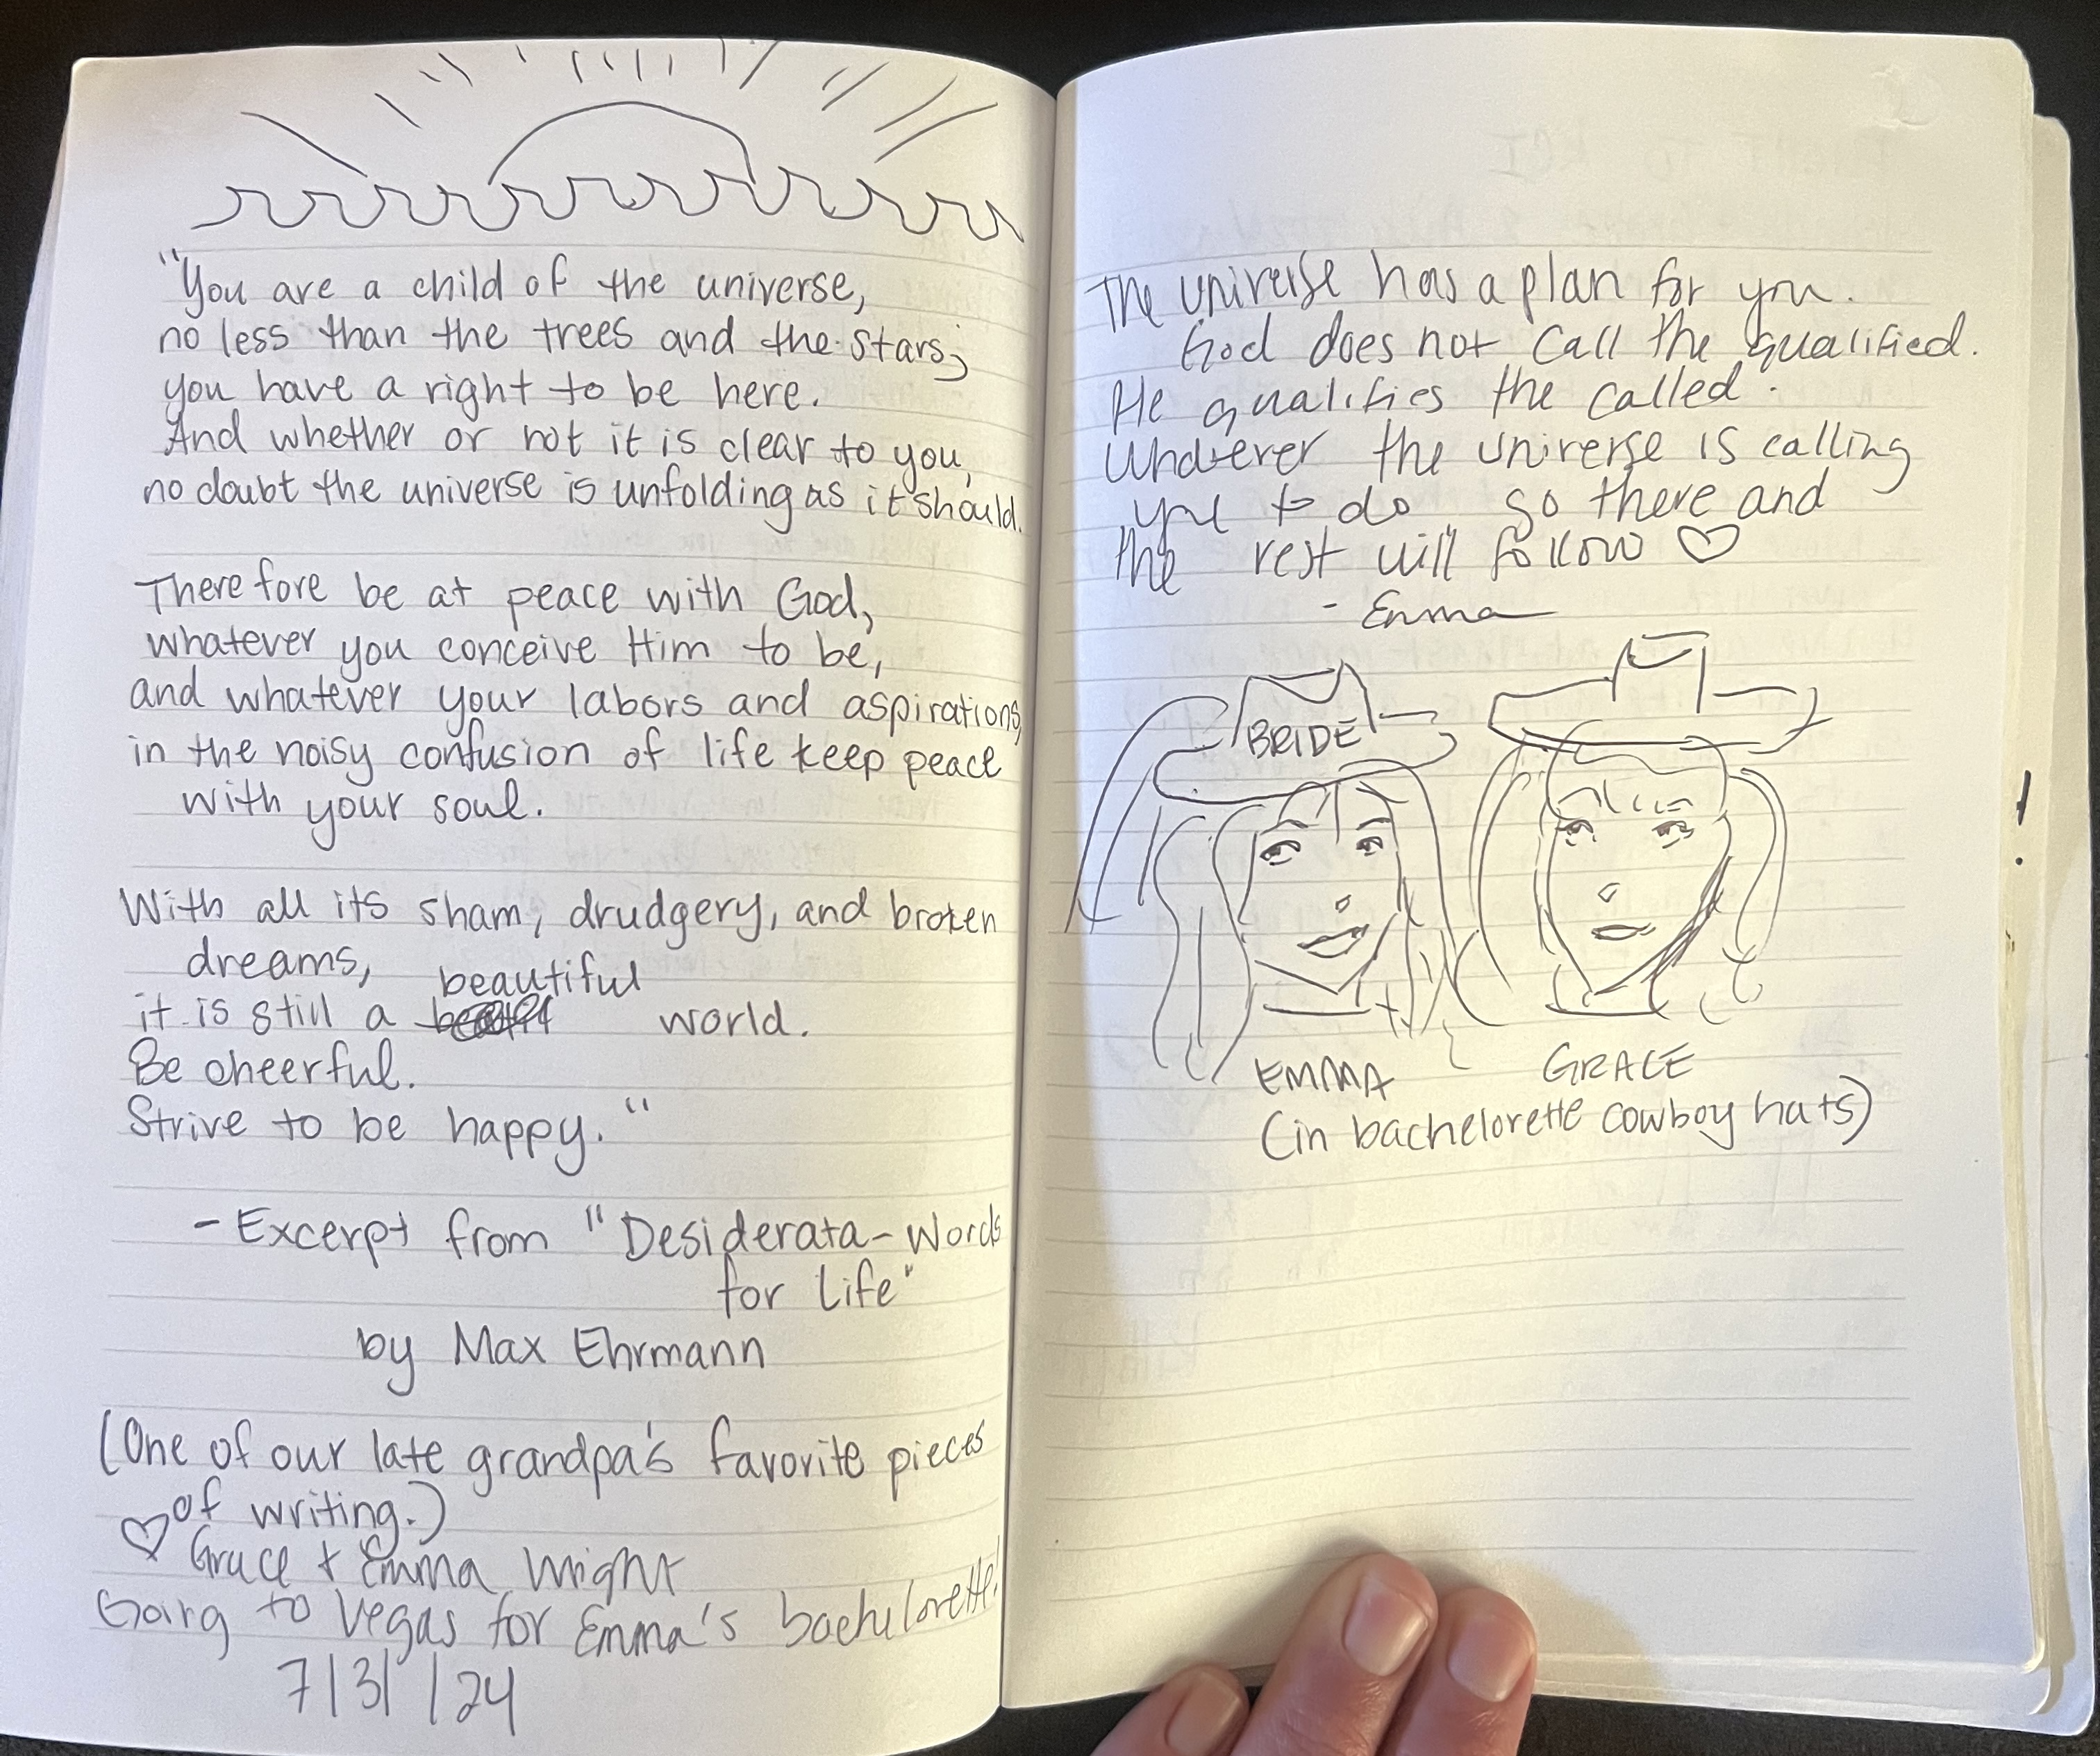 "You are a child of the universe,
no less than the trees and the stars;
you have a right to be here.
And whether or not it is clear to you,
no doubt the universe is unfolding as it should.
Therefore be at peace with God,
whatever you conceive Him to be,
and whatever your labors and aspirations,
in the noisy confusion of life keep peace
with your soul.
With all its sham, drudgery, and broken
dreams,
beautiful
it is still a world.
Be cheerful.
Strive to be happy."
- Excerpt from "Desiderata - Words
for Life"
by Max Ehrmann
(One of our late grandpa's favorite pieces
of writing.)
♡ Grace + Emma Wright
Going to Vegas for Emma's bachelorette!
7/31/24
The universe has a plan for you.
God does not call the qualified.
He qualifies the called.
Whatever the universe is calling
you to do go there and
the rest will follow ♡
- Emma
BRIDE
EMMA GRACE
(in bachelorette cowboy hats)